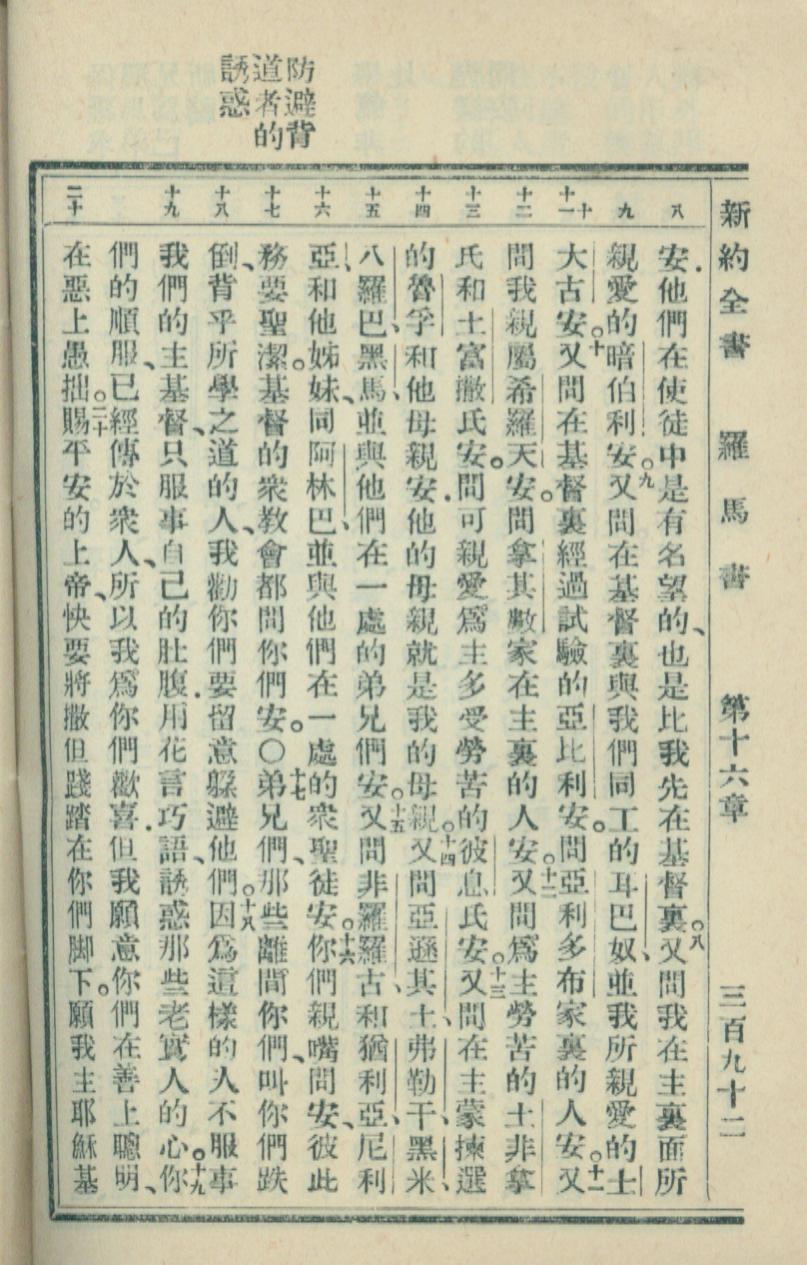 新約全書 羅馬書 第十六章 三百九十二
防避背
道者的
誘惑
八
九
十
十一
十二
十三
十四
十五
十六
十七
十八
十九
二十
安.他們在使徒中是有名望的、也是比我先在基督裏。八又問我在主裏面所
親愛的暗伯利安。九又問在基督裏與我們同工的耳巴奴、並我所親愛的士
大古安。十又問在基督裏經過試驗的亞比利安。問亞利多布家裏的人安。十一又
問我親屬希羅天安。問拿其數家在主裏的人安。十二又問爲主勞苦的土非拿
氏和土富撒氏安。問可親愛爲主多受勞苦的彼息氏安。十三又問在主蒙揀選
的魯孚和他母親安.他的母親就是我的母親。十四又問亞遜其土、弗勒干、黑米、
八羅巴、黑馬、並與他們在一處的弟兄們安。十五又問非羅羅古、和猶利亞、尼利
亞、和他姊妹、同阿林巴、並與他們在一處的衆聖徒安。十六你們親嘴問安、彼此
務要聖潔。基督的衆教會都問你們安。〇十七弟兄們、那些離間你們、叫你們跌
倒、背乎所學之道的人、我勸你們要留意躲避他們。十八因爲這樣的人不服事
我們的主基督、只服事自己的肚腹.用花言巧語、誘惑那些老實人的心。十九你
們的順服、已經傳於衆人、所以我爲你們歡喜.但我願意你們在善上聰明、
在惡上愚拙。二十賜平安的上帝、快要將撒但踐踏在你們脚下。願我主耶穌基